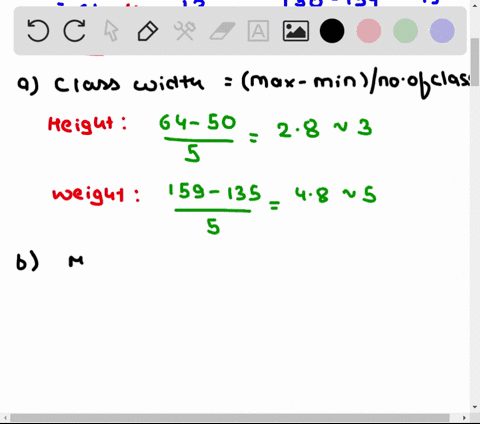 a) Class width = (max-min)/no.of class
Height: 64-50/5 = 2.8 ~ 3
weight: 159-135/5 = 4.8 ~ 5
b) M